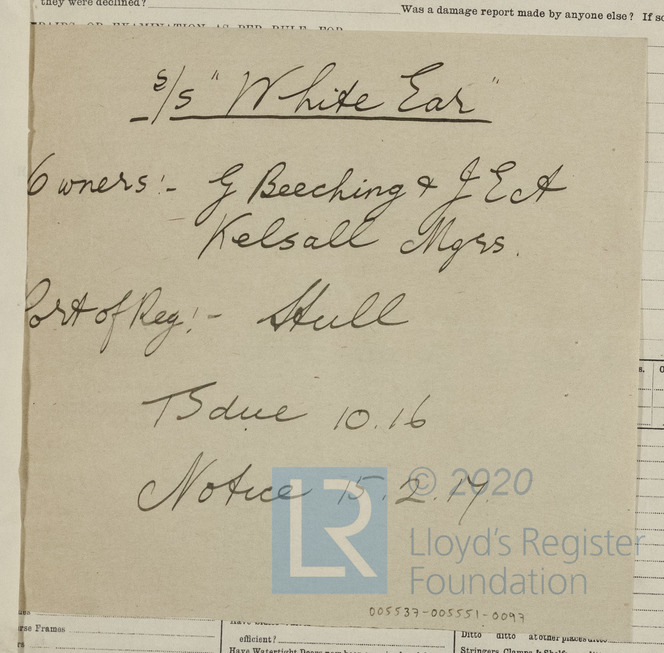 they were declined?
Was a damage report made by anyone else? If so
OR EXAMINATION AS PER RULE FOR
s/s "White Ear"
Owners:- G Beeching & J E A
Kelsall Mgrs.
Port of Reg:- Hull
BS due 10.16
Notice 15.2.17.
© 2020
LR
Lloyd's Register
Foundation
005537-005551-0097
rse Frames
efficient?
Ditto ditto at other places ditto
Have Watertight Doors
Stringers, Clamps & Shelf